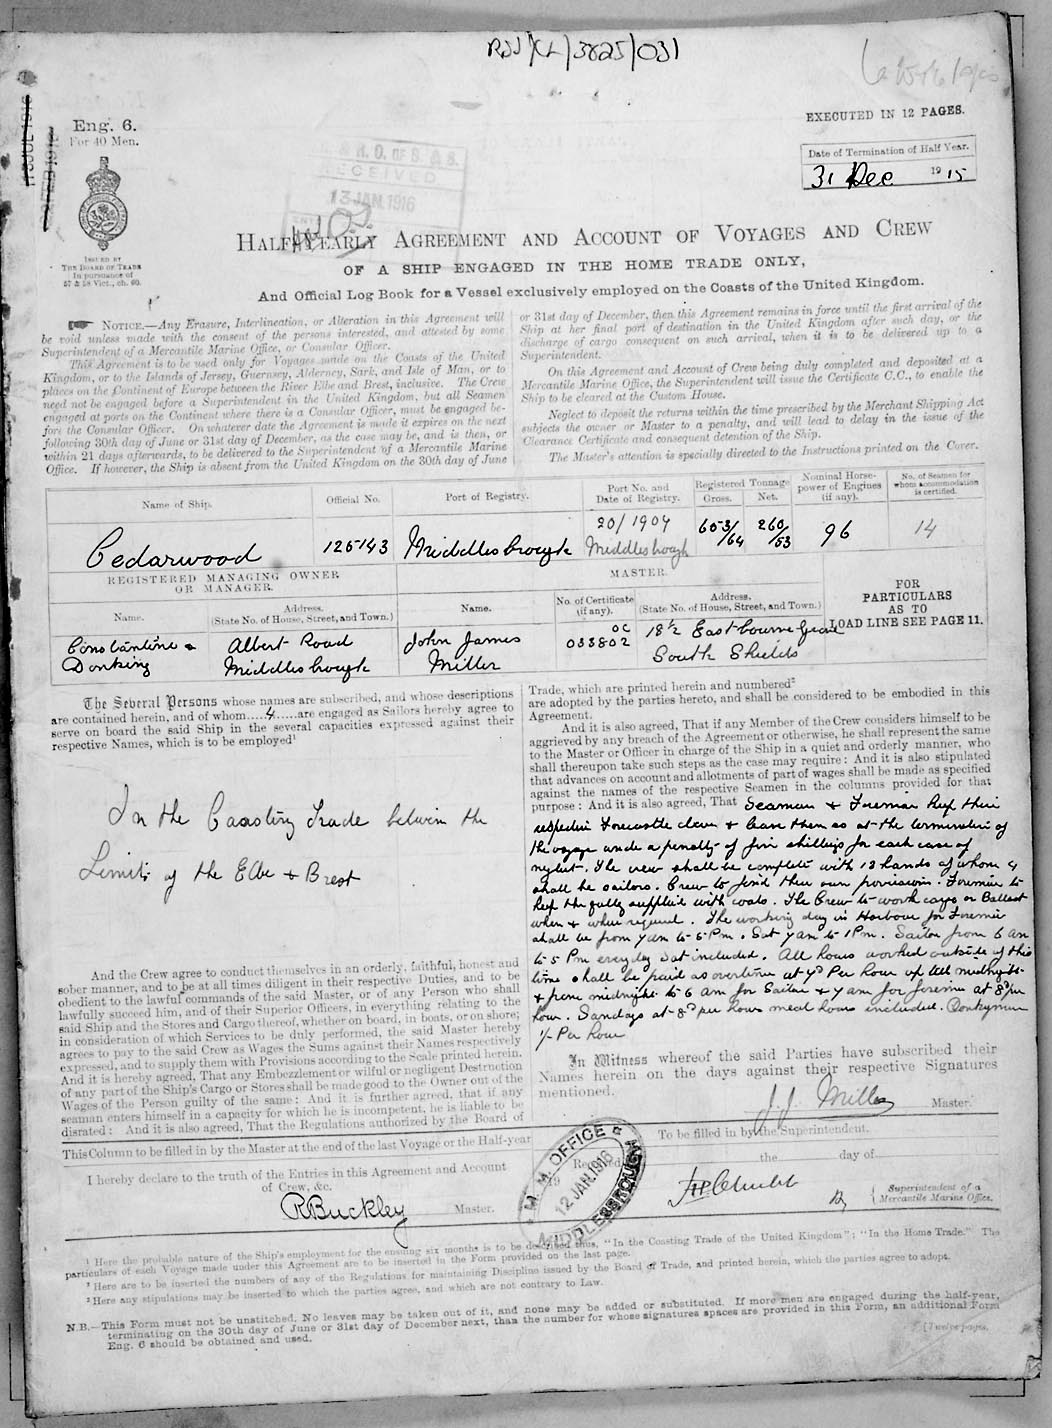 RSS/CL/3825/031
Eng. 6.
For 40 Men.
EXECUTED IN 12 PAGES.
Date of Termination of Half Year.
31 Dec 1915
RECEIVED
13 JAN. 1916
ISSUED BY
THE BOARD OF TRADE
In pursuance of
57 & 58 Vict., ch. 60.
HALF-YEARLY AGREEMENT AND ACCOUNT OF VOYAGES AND CREW
OF A SHIP ENGAGED IN THE HOME TRADE ONLY,
And Official Log Book for a Vessel exclusively employed on the Coasts of the United Kingdom.
NOTICE.—Any Erasure, Interlineation, or Alteration in this Agreement will
be void unless made with the consent of the persons interested, and attested by some
Superintendent of a Mercantile Marine Office, or Consular Officer.
This Agreement is to be used only for Voyages made on the Coasts of the United
Kingdom, or to the Islands of Jersey, Guernsey, Alderney, Sark, and Isle of Man, or to
places on the Continent of Europe between the River Elbe and Brest, inclusive. The Crew
need not be engaged before a Superintendent in the United Kingdom, but all Seamen
engaged at ports on the Continent where there is a Consular Officer, must be engaged be-
fore the Consular Officer. On whatever date the Agreement is made it expires on the next
following 30th day of June or 31st day of December, as the case may be, and is then, or
within 21 days afterwards, to be delivered to the Superintendent of a Mercantile Marine
Office. If however, the Ship is absent from the United Kingdom on the 30th day of June
or 31st day of December, then this Agreement remains in force until the first arrival of the
Ship at her final port of destination in the United Kingdom after such day, or the
discharge of cargo consequent on such arrival, when it is to be delivered up to a
Superintendent.
On this Agreement and Account of Crew being duly completed and deposited at a
Mercantile Marine Office, the Superintendent will issue the Certificate C.C., to enable the
Ship to be cleared at the Custom House.
Neglect to deposit the returns within the time prescribed by the Merchant Shipping Act
subjects the owner or Master to a penalty, and will lead to delay in the issue of the
Clearance Certificate and consequent detention of the Ship.
The Master's attention is specially directed to the Instructions printed on the Cover.
Name of Ship. Official No. Port of Registry. Port No. and Date of Registry. Registered Tonnage Gross. Net. Nominal Horse-power of Engines (if any). No. of Seamen for whom accommodation is certified.
Cedarwood 125143 Middlesbrough 20/1904 Middlesbrough 653/64 260/53 96 14
REGISTERED MANAGING OWNER
OR MANAGER.
MASTER.
FOR
PARTICULARS
AS TO
LOAD LINE SEE PAGE 11.
Name. Address. (State No. of House, Street, and Town.) Name. No. of Certificate (if any). Address. (State No. of House, Street, and Town.)
Constantine & Albert Road John James OC 18½ Eastbourne Grove
Donking Middlesbrough Miller 033802 South Shields
The Several Persons whose names are subscribed, and whose descriptions
are contained herein, and of whom.....4.....are engaged as Sailors hereby agree to
serve on board the said Ship in the several capacities expressed against their
respective Names, which is to be employed¹
In the Coasting Trade between the
Limits of the Elbe & Brest
And the Crew agree to conduct themselves in an orderly, faithful, honest and
sober manner, and to be at all times diligent in their respective Duties, and to be
obedient to the lawful commands of the said Master, or of any Person who shall
lawfully succeed him, and of their Superior Officers, in everything relating to the
said Ship and the Stores and Cargo thereof, whether on board, in boats, or on shore;
in consideration of which Services to be duly performed, the said Master hereby
agrees to pay to the said Crew as Wages the Sums against their Names respectively
expressed, and to supply them with Provisions according to the Scale printed herein.
And it is hereby agreed, That any Embezzlement or wilful or negligent Destruction
of any part of the Ship's Cargo or Stores shall be made good to the Owner out of the
Wages of the Person guilty of the same: And it is further agreed, that if any
seaman enters himself in a capacity for which he is incompetent, he is liable to be
disrated: And it is also agreed, That the Regulations authorized by the Board of
Trade, which are printed herein and numbered²
are adopted by the parties hereto, and shall be considered to be embodied in this
Agreement.
And it is also agreed, That if any Member of the Crew considers himself to be
aggrieved by any breach of the Agreement or otherwise, he shall represent the same
to the Master or Officer in charge of the Ship in a quiet and orderly manner, who
shall thereupon take such steps as the case may require: And it is also stipulated
that advances on account and allotments of part of wages shall be made as specified
against the names of the respective Seamen in the columns provided for that
purpose: And it is also agreed, That Seamen & Firemen keep their
respective Forecastle clean & leave them so at the termination of
the voyage under a penalty of five shillings for each case of
neglect. The crew shall be complete with 13 hands of whom 4
shall be sailors. Crew to find their own provisions. Firemen to
keep the galley supplied with coals. The Crew to work cargo or Ballast
when & where required. The working day in Harbour for Firemen
shall be from 7 am to 5 Pm. Sat 7 am to 1 Pm. Sailors from 6 am
to 5 Pm every day Sat included. All hours worked outside of this
time shall be paid as overtime at 7d Per hour up till midnight
& from midnight to 6 am for Sailors & 7 am for firemen at 8d per
hour. Sundays at 8d per hour meal hours included. Donkeyman
1/- Per hour
In Witness whereof the said Parties have subscribed their
Names herein on the days against their respective Signatures
mentioned.
J J Miller Master.
This Column to be filled in by the Master at the end of the last Voyage or the Half-year
I hereby declare to the truth of the Entries in this Agreement and Account
of Crew, &c.
R Buckley Master.
To be filled in by the Superintendent.
Received the day of
19
Superintendent of a
Mercantile Marine Office.
M. M. OFFICE
12 JAN. 1916
MIDDLESBROUGH
¹ Here the probable nature of the Ship's employment for the ensuing six months is to be described thus, "In the Coasting Trade of the United Kingdom"; "In the Home Trade." The
particulars of each Voyage made under this Agreement are to be inserted in the Form provided on the last page.
² Here are to be inserted the numbers of any of the Regulations for maintaining Discipline issued by the Board of Trade, and printed herein, which the parties agree to adopt.
³ Here any stipulations may be inserted to which the parties agree, and which are not contrary to Law.
N.B.—This Form must not be unstitched. No leaves may be taken out of it, and none may be added or substituted. If more men are engaged during the half-year,
terminating on the 30th day of June or 31st day of December next, than the number for whose signatures spaces are provided in this Form, an additional Form
Eng. 6 should be obtained and used.
[Twelve pages.